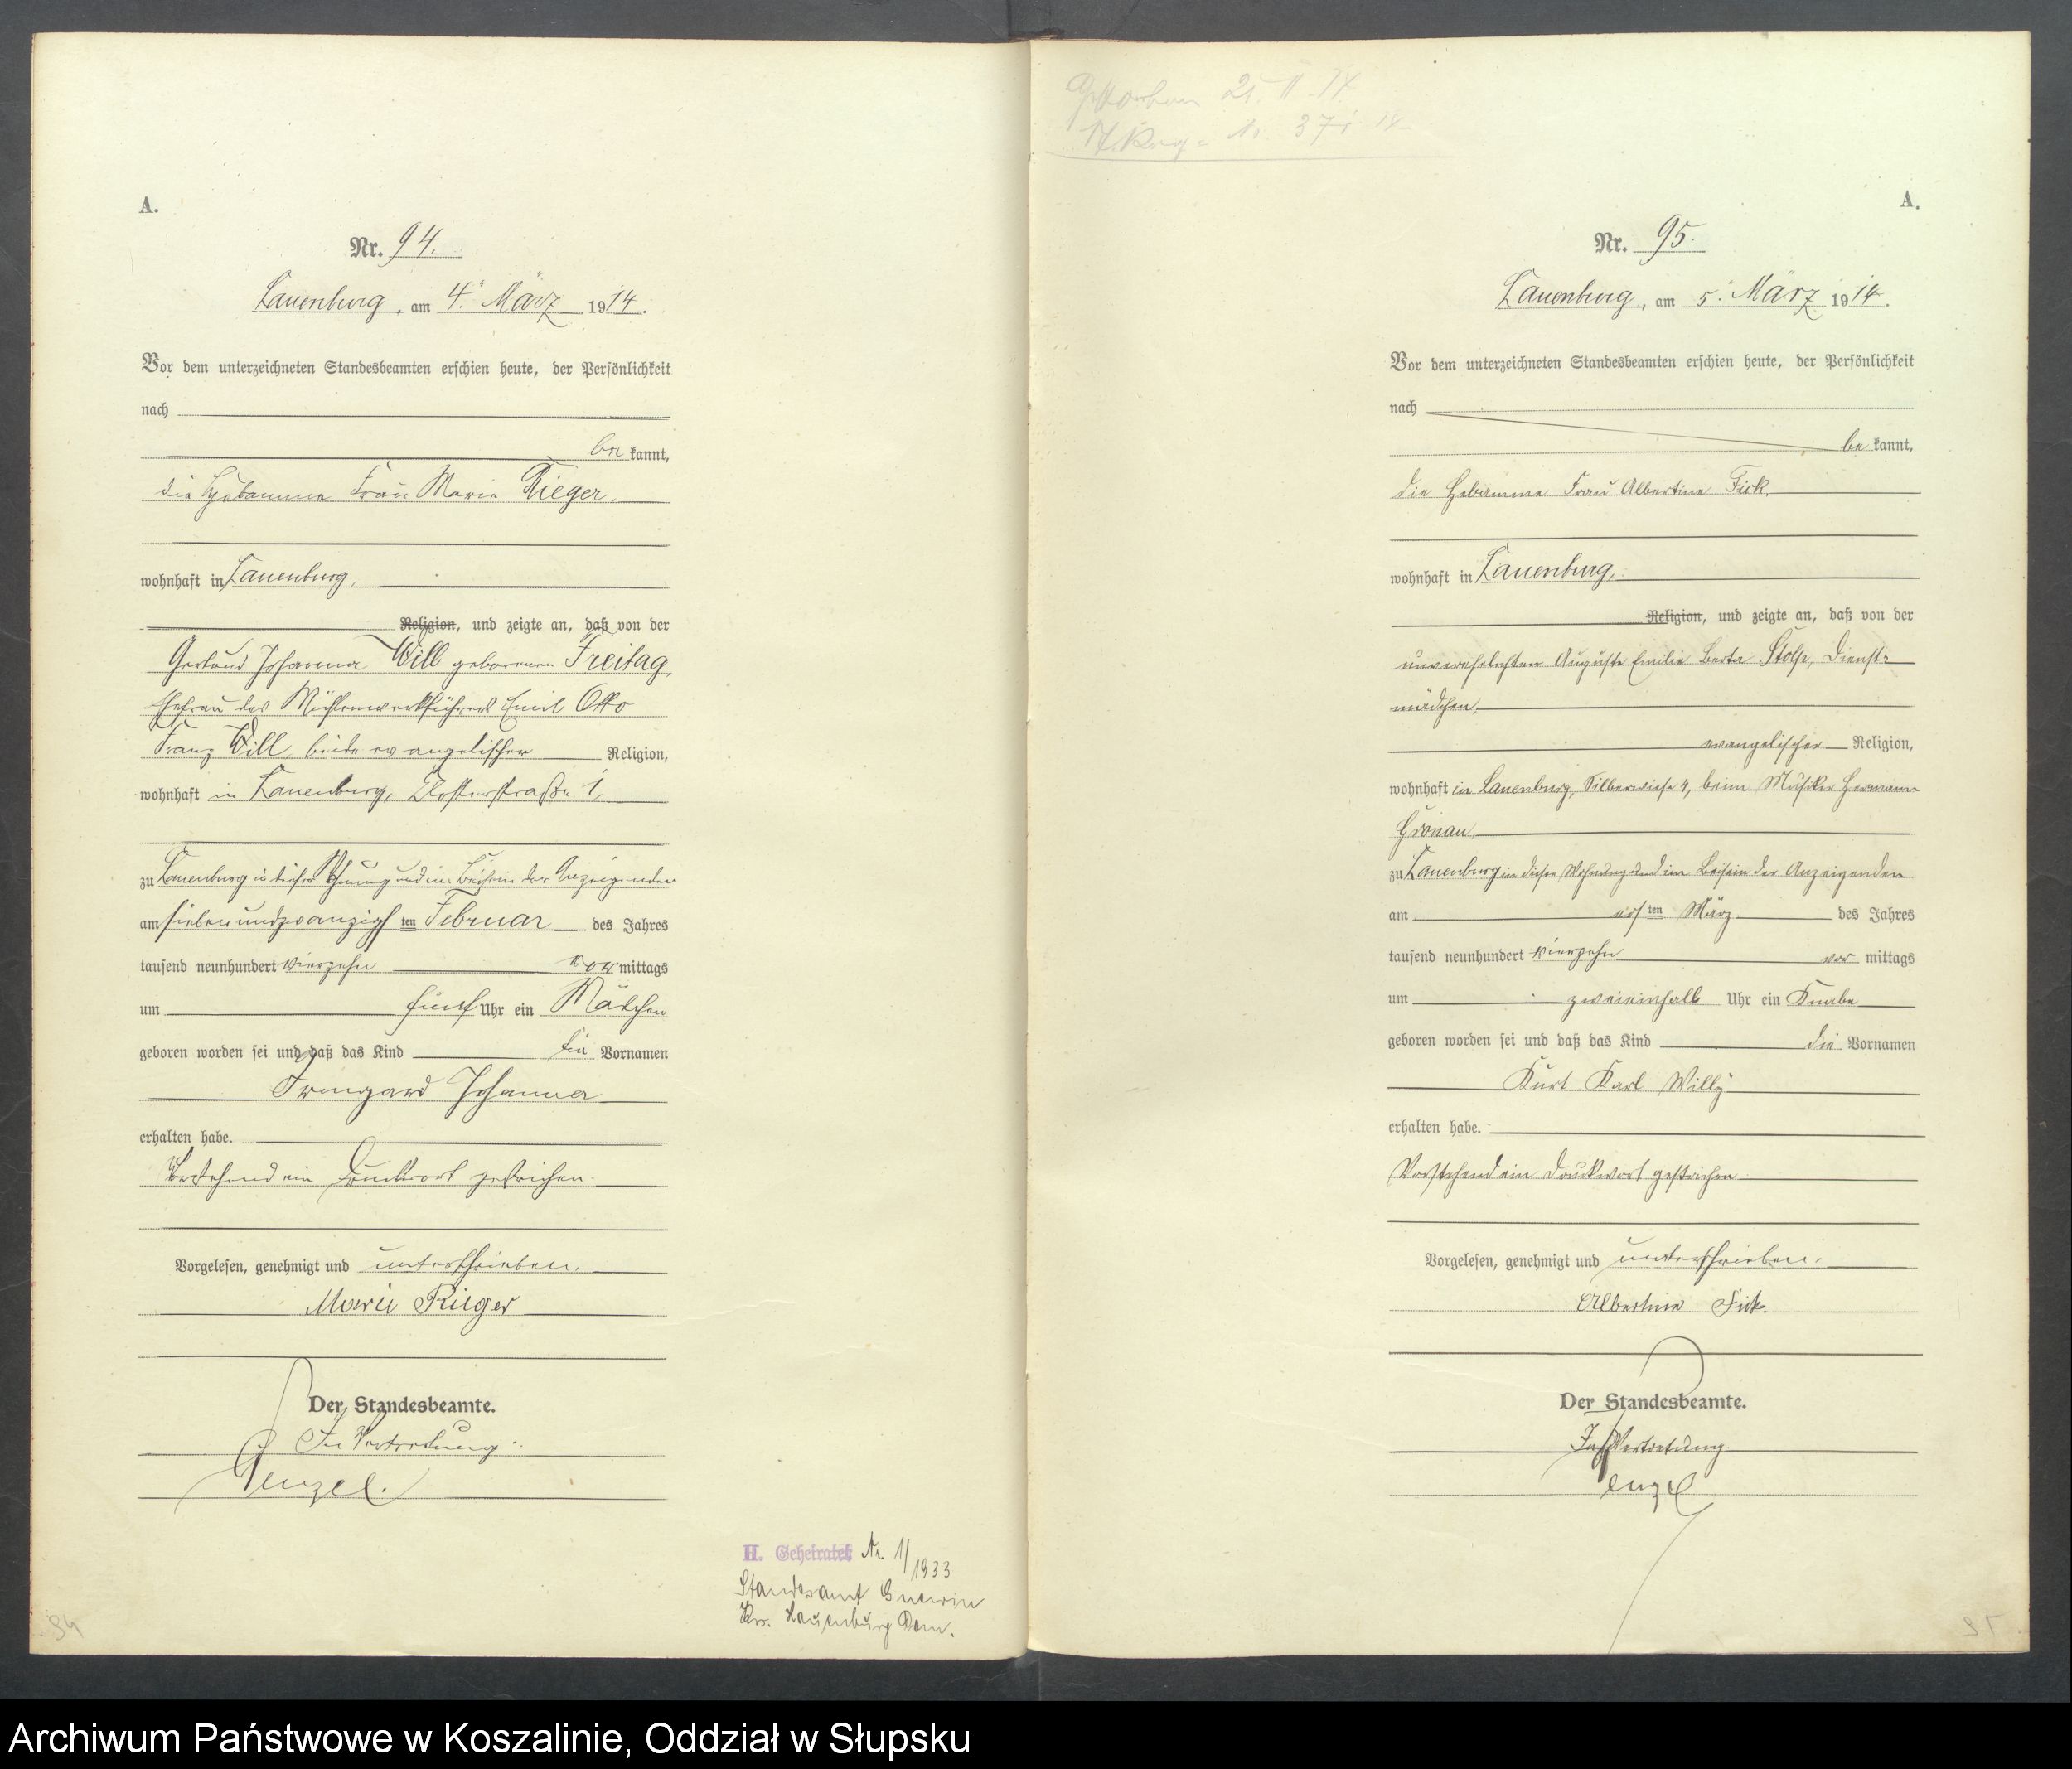 A.
Nr. 94.
Lauenburg, am 4. März 1914.
Vor dem unterzeichneten Standesbeamten erschien heute, der Persönlichkeit
nach
be kannt,
die Hebamme Frau Marie Rieger,
wohnhaft in Lauenburg,
Religion, und zeigte an, daß von der
Gertrud Johanna Will geborenen Freitag,
Ehefrau des Mühlenwerkführers Emil Otto
Franz Will, beide evangelischer Religion,
wohnhaft in Lauenburg, Klosterstraße 1,
zu Lauenburg in dieser Wohnung und im Beisein der Anzeigenden
am siebenundzwanzigsten Februar des Jahres
tausend neunhundert vierzehn vormittags
um fünf Uhr ein Mädchen
geboren worden sei und daß das Kind die Vornamen
Irmgard Johanna
erhalten habe.
Vorstehend ein Druckwort gestrichen.
Vorgelesen, genehmigt und unterschrieben.
Marie Rieger
Der Standesbeamte.
In Vertretung:
H. Geheiratet Nr. 1/1933
Standesamt Gnewin
Krs. Lauenburg Pom.
94
Gestorben 21. 11. 14
A.
Nr. 95.
Lauenburg, am 5. März 1914.
Vor dem unterzeichneten Standesbeamten erschien heute, der Persönlichkeit
nach
be kannt,
die Hebamme Frau Albertine Fick,
wohnhaft in Lauenburg,
Religion, und zeigte an, daß von der
unverehelichten Auguste Emilie Berta Stolp, Dienst=
mädchen,
evangelischer Religion,
wohnhaft in Lauenburg, Silberwiese 4, beim Musiker Hermann
Gronau,
zu Lauenburg in dieser Wohnung und im Beisein der Anzeigenden
am ersten März des Jahres
tausend neunhundert vierzehn vor mittags
um zweieinhalb Uhr ein Knabe
geboren worden sei und daß das Kind die Vornamen
Kurt Karl Willy
erhalten habe.
Vorstehend ein Druckwort gestrichen
Vorgelesen, genehmigt und unterschrieben.
Albertine Fick.
Der Standesbeamte.
In Vertretung.
95
Archiwum Państwowe w Koszalinie, Oddział w Słupsku